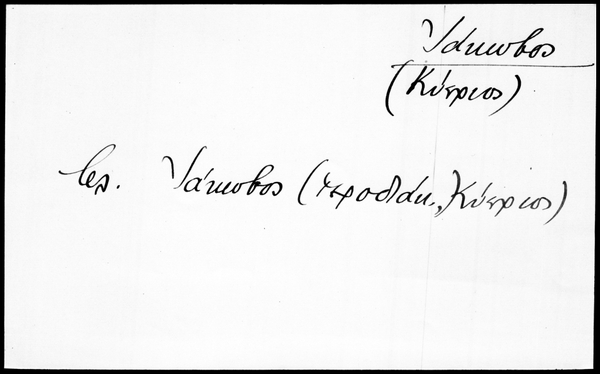 Ἰάκωβος
(Κύπριος)
βλ. Ἰάκωβος (ἱεροδιάκ., Κύπριος)